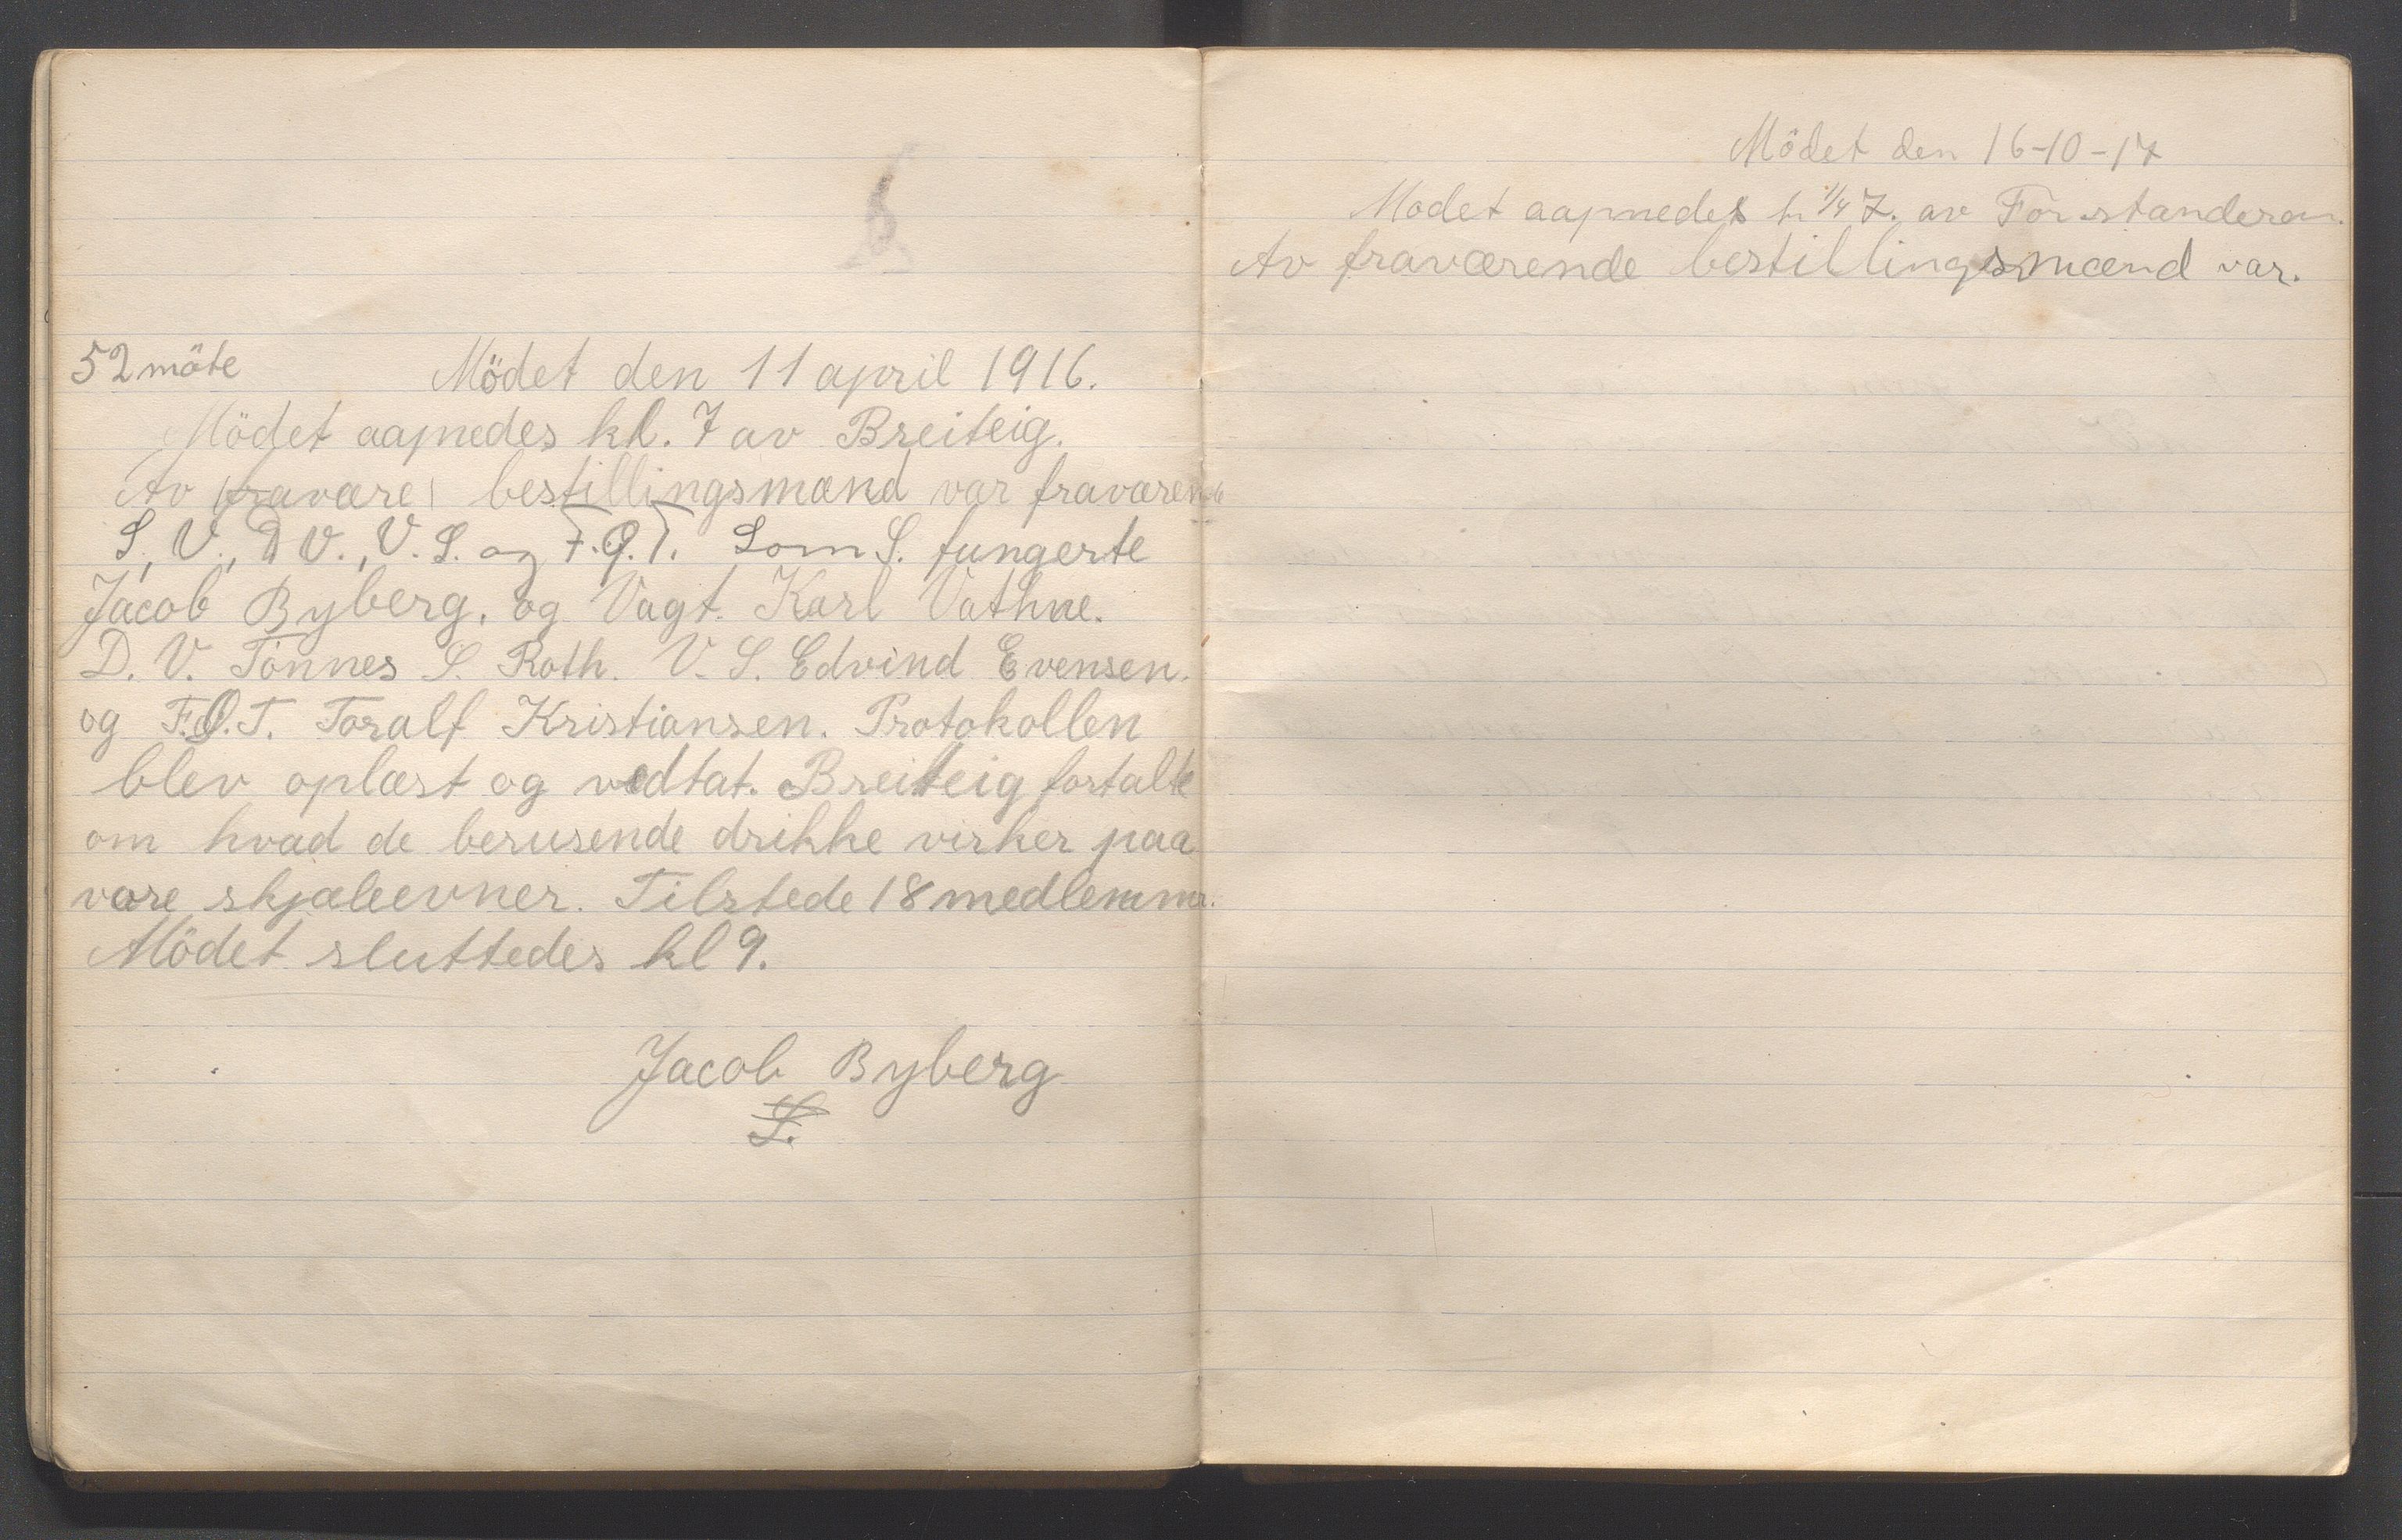 52 möte Mödet den 11 april 1916.
Mödet aapnedes kl. 7 av Breiteig.
Av fravære bestillingsmænd var fraværende
S, V., D V., V. S. og F.Q.T. Som S. fungerte
Jacob Byberg. og Vagt. Karl Vathne.
D. V. Tönnes S. Roth. V. S. Edvind Evensen.
og F.Q.T. Toralf Kristiansen. Protokollen
blev oplæst og vedtat. Breiteig fortalte
om hvad de berusende drikke virker paa
vore skjæleevner. Tilstede 18 medlemmer.
Mödet sluttedes kl 9.
Jacob Byberg
S.
Mödet den 16-10-17
Modet aapnedes kl 1/4 7. av Forstanderen.
Av fraværende bestillingsmænd var.